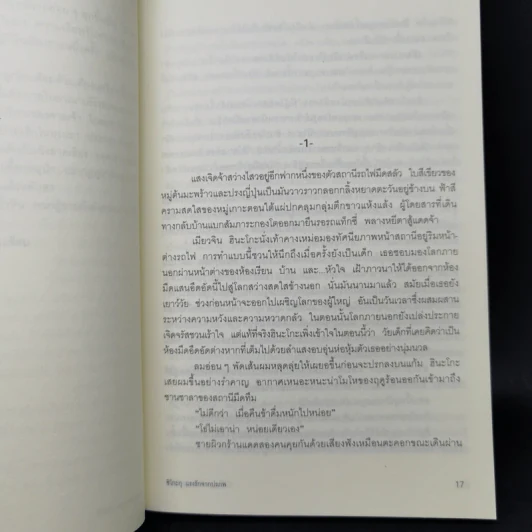 -1-
แสงเจิดจ้าสว่างไสวอยู่อีกฟากหนึ่งของตัวสถานีรถไฟมืดสลัว ใบสีเขียวของ
หมู่ต้นมะพร้าวและปรงญี่ปุ่นเป็นมันวาวราวกลอกกลิ้งหยาดตะวันอยู่ข้างบน ฟ้าสี
ครามสดใสของหมู่เกาะตอนใต้แผ่ปกคลุมกลุ่มตึกขาวแห้งแล้ง ผู้โดยสารที่เดิน
ทางกลับบ้านแบกสัมภาระกองโตออกมายืนรอรถแท็กซี่ พลางหยีตาสู้แดดจ้า
เมียวจิน ฮินะโกะนั่งเท้าคางเหม่อมองทัศนียภาพหน้าสถานีอยู่ริมหน้า-
ต่างรถไฟ การทำแบบนี้ชวนให้นึกถึงเมื่อครั้งยังเป็นเด็ก เธอชอบมองโลกภาย
นอกผ่านหน้าต่างของห้องเรียน บ้าน และ...หัวใจ เฝ้าภาวนาให้ได้ออกจากห้อง
มืดแสนอึดอัดนี้ไปสู่โลกสว่างสดใสข้างนอก นั่นมันนานมาแล้ว สมัยเมื่อเธอยัง
เยาว์วัย ช่วงก่อนหน้าจะออกไปเผชิญโลกของผู้ใหญ่ อันเป็นวันเวลาซึ่งผสมผสาน
ระหว่างความหวังและความหวาดกลัว ในตอนนั้นโลกภายนอกยังเปล่งประกาย
เจิดจรัสชวนเร้าใจ แต่แท้ที่จริงฮินะโกะเพิ่งเข้าใจในตอนนี้ว่า วัยเด็กที่เคยคิดว่าเป็น
ห้องมืดอึดอัดต่างหากที่เต็มไปด้วยลำแสงอบอุ่นห่อหุ้มตัวเธออย่างนุ่มนวล
ลมอ่อนๆ พัดเส้นผมหลุดลุ่ยให้เผยอขึ้นก่อนจะปรกลงบนแก้ม ฮินะโกะ
เสยผมขึ้นอย่างรำคาญ อากาศเหนอะหนะน่าโมโหของฤดูร้อนออกันเข้ามาถึง
ชานชาลาของสถานีมืดทึม
"ไม่ดีกว่า เมื่อคืนข้าดื่มหนักไปหน่อย"
"โธ่ไม่เอาน่า หน่อยเดียวเอง"
ชายผิวกร้านแดดสองคนคุยกันด้วยเสียงฟังเหมือนตะคอกขณะเดินผ่าน
17